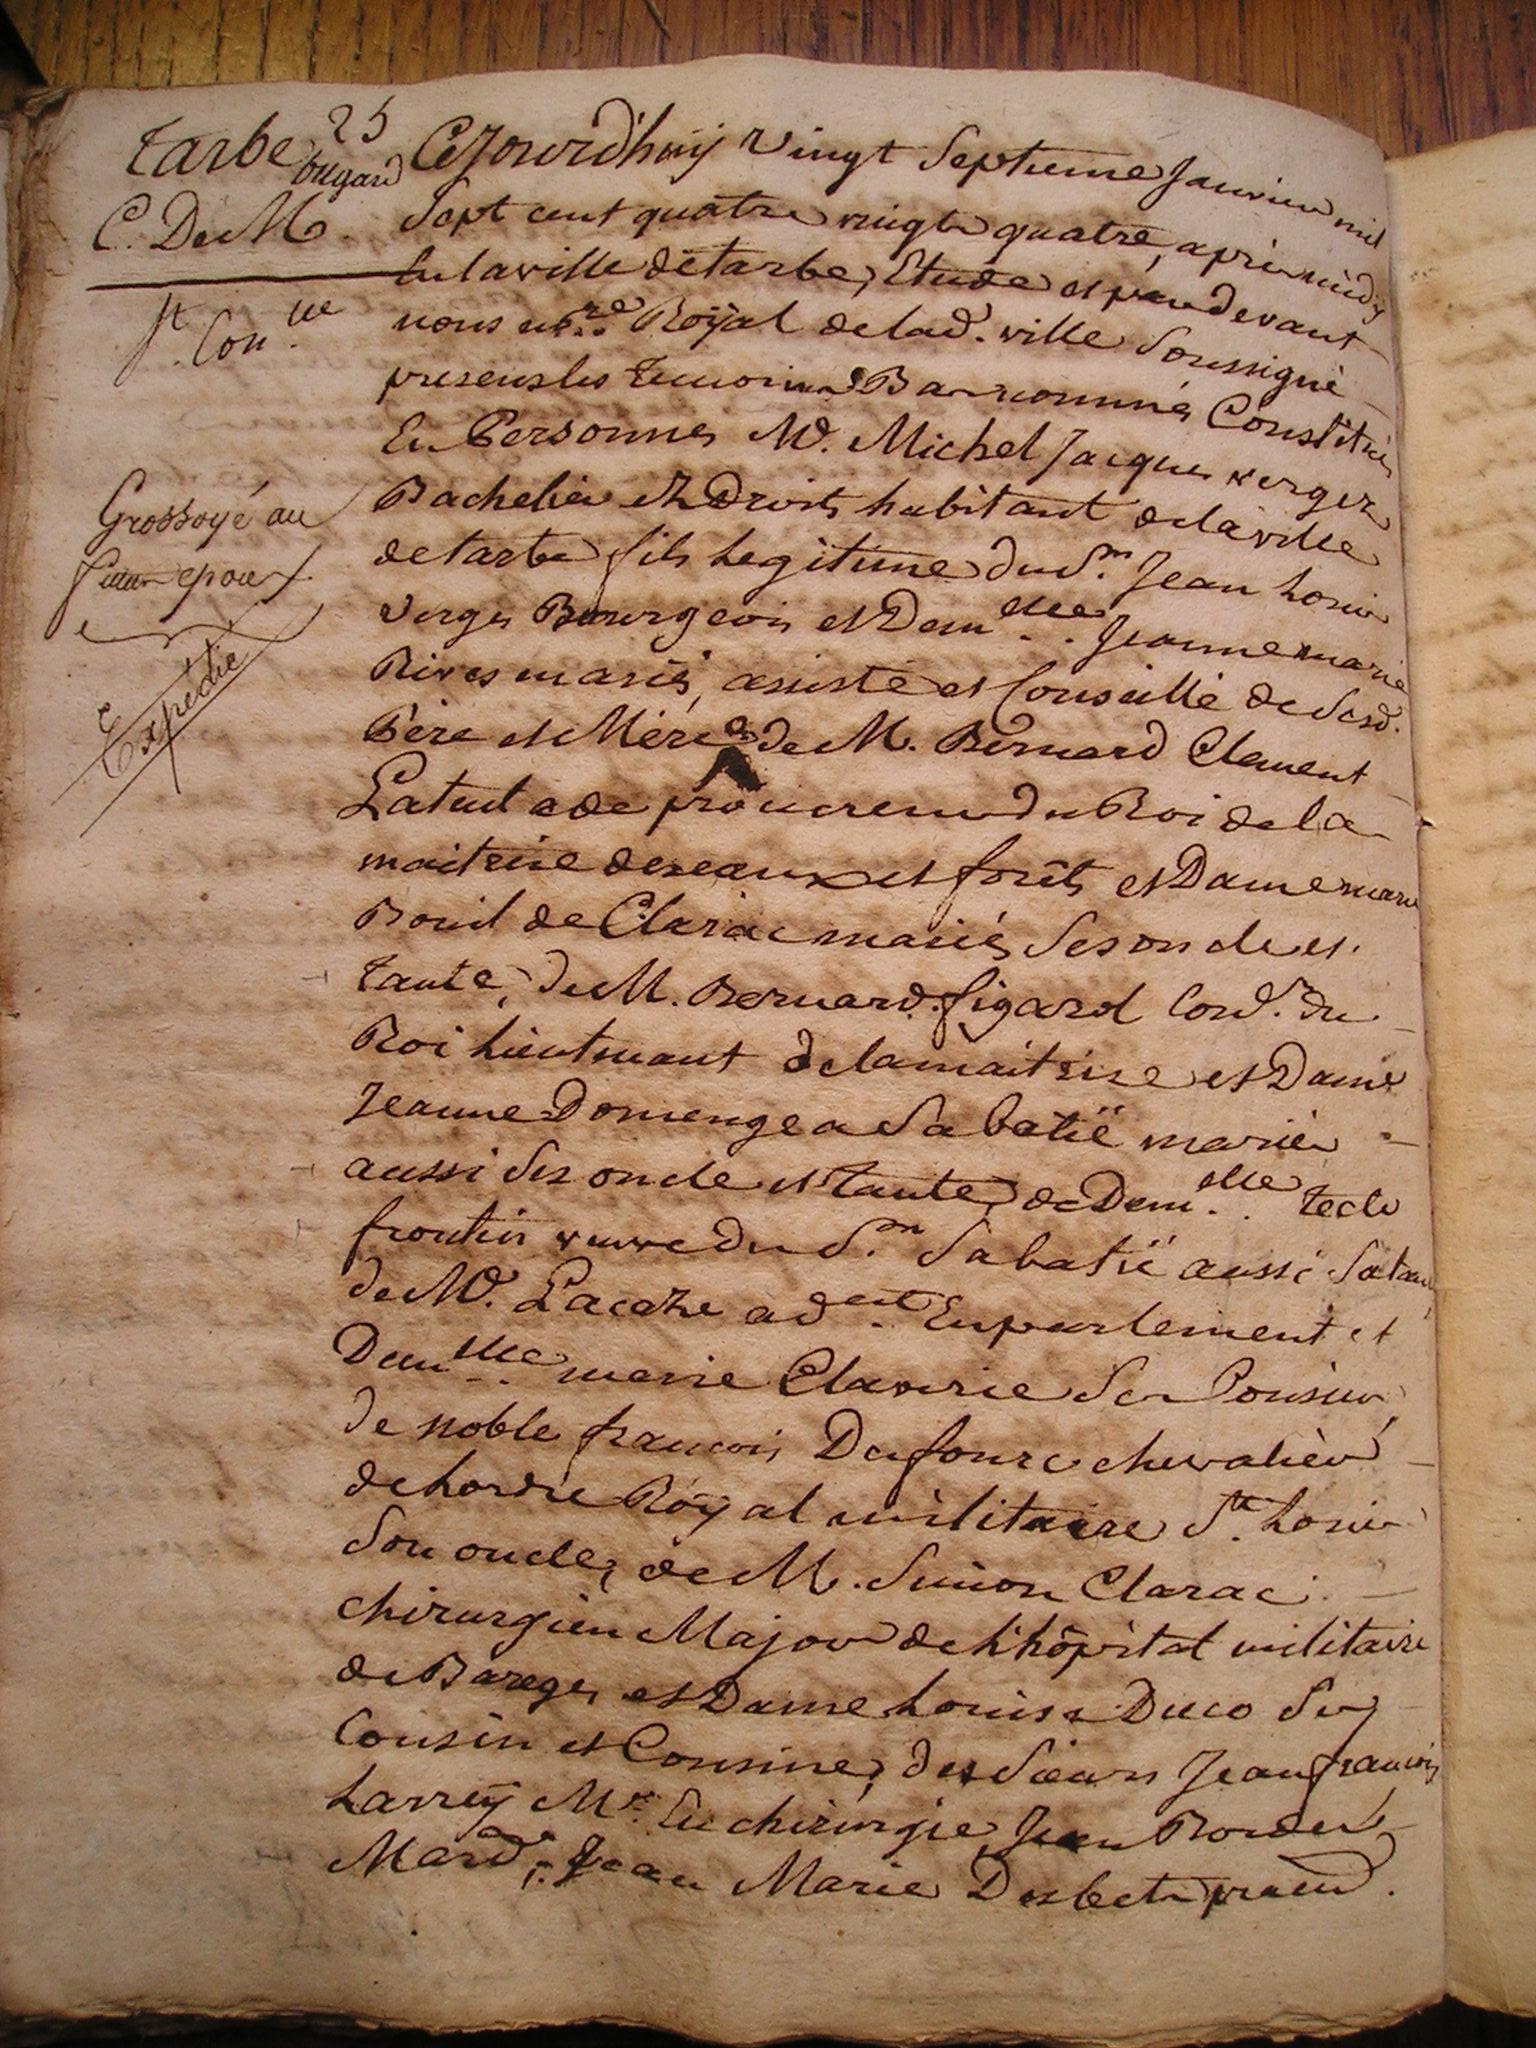 tarbe 25
ougard
C. De M.
St. Con.ue
Grossoyé au
futur epoux
Expedié
Cejourd'huij vingt Septieme Janvier mil
Sept cent quatre vingt quatre, après midy
En la ville de tarbe, Etude et par devant
nous no.re Roÿal de lad. ville Soussigné
presens les temoins Bas nommés Constitués
En Personnes Me. Michel Jacques verges
Bachelier Ez Droits habitant de la ville
de tarbe fils Legitime du Sr. Jean Louis
Verges Bourgeois et Dem.elle Jeanne marie
Rives mariés, assisté et Conseillé de Sesd.
Père et Mère de M. Bernard Clement
de procureur du Roi de la
maitrise des eaux et forêts et Dame marie
Bouil de Clarac mariés Ses oncle et
tante, de M. Bernard figarol Con.er du
Roi Lieutenant de la maitrise et Dame
Jeanne Domengea Sabatië mariés
aussi Ses oncle et tante, de Dem.elle tecle
froutin veuve du Sr. Sabatië aussi Sa tante,
de Me. Lacaze ad.cat En parlement et
Dem.elle marie Claverie Ses Cousins,
de noble françois Dufourc chevalier
de Lordre Roÿal militaire St. Louis
Son oncle, de M. Simon Clarac
chirurgien Major de Lhôpital militaire
de Bareges et Dame Louise Duco Ses
Cousin et Cousine, des Sieurs Jean françois
Larreÿ Me. En chirurgie, Jean Borderé
Mard., Jean Marie Desbets praticien.